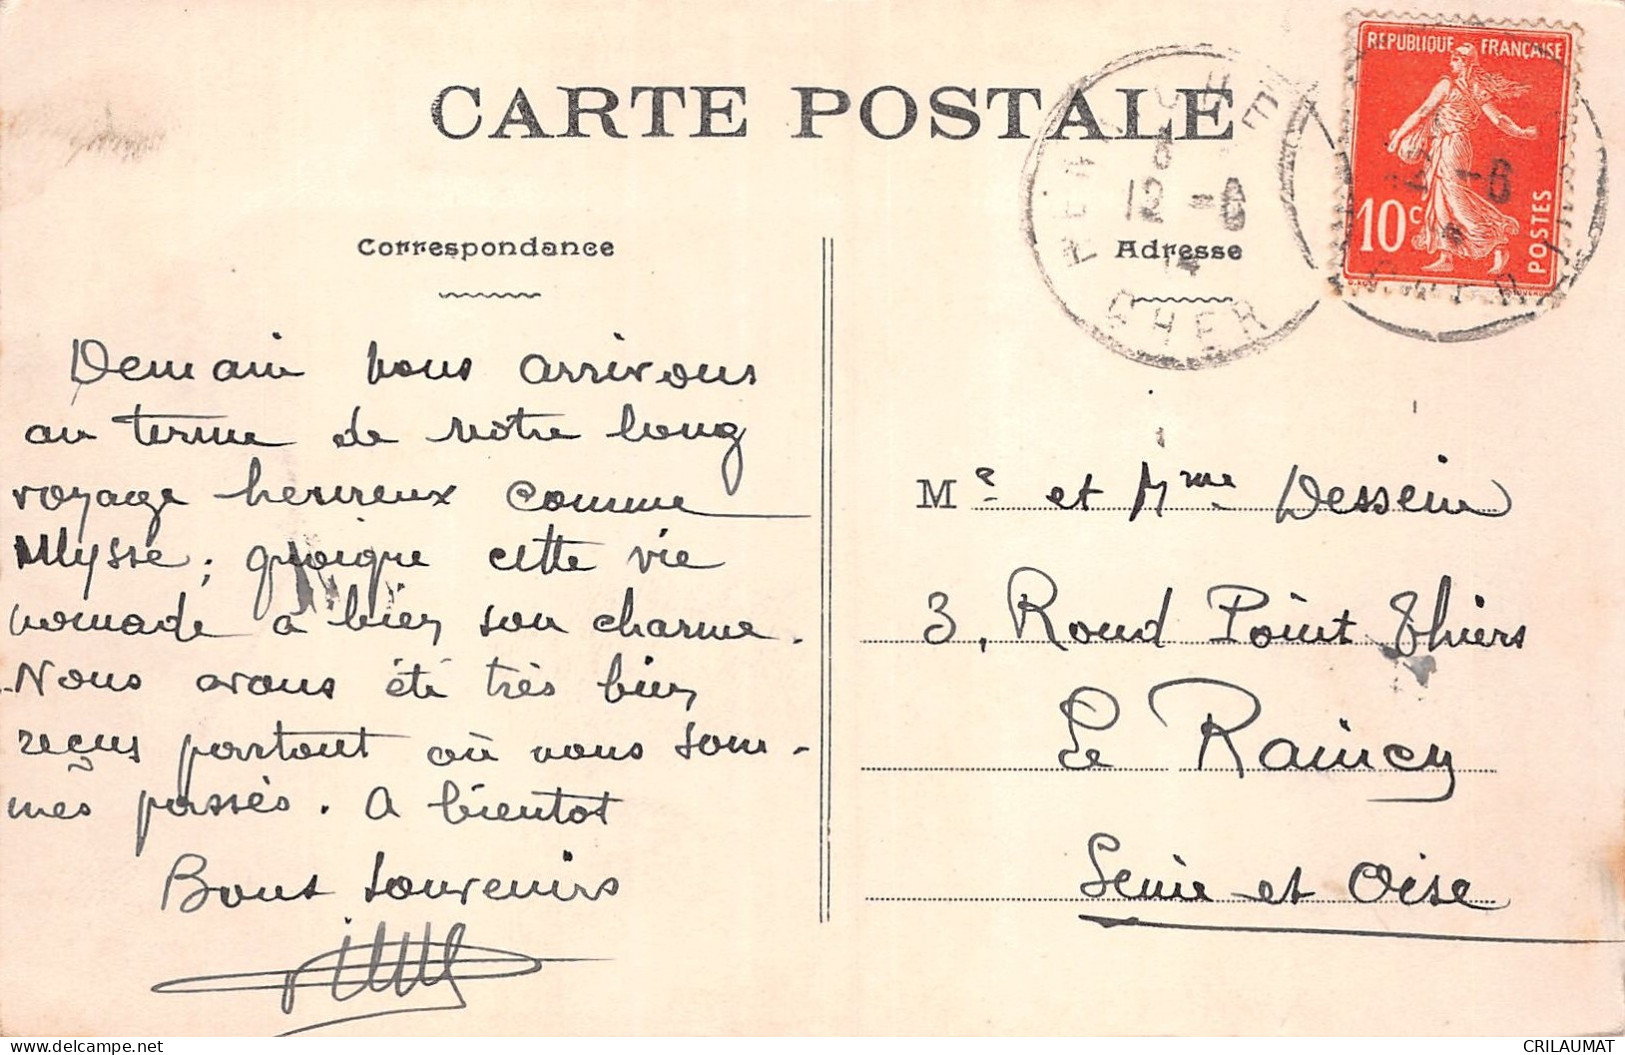 CARTE POSTALE
REPUBLIQUE FRANÇAISE
10c
POSTES
12 - 6
14
CHER
12 - 6
Correspondance
Adresse
Demain nous arrivons
au terme de notre long
voyage heureux comme
Ulysse ; quoique cette vie
nomade à bien son charme.
Nous avons été très bien
reçus partout où nous som-
mes passés. A bientôt
Bons souvenirs
Mr et Mme Dessein
3, Rond Point Thiers
Le Raincy
Seine et Oise
CRILAUMAT
delcampe.net